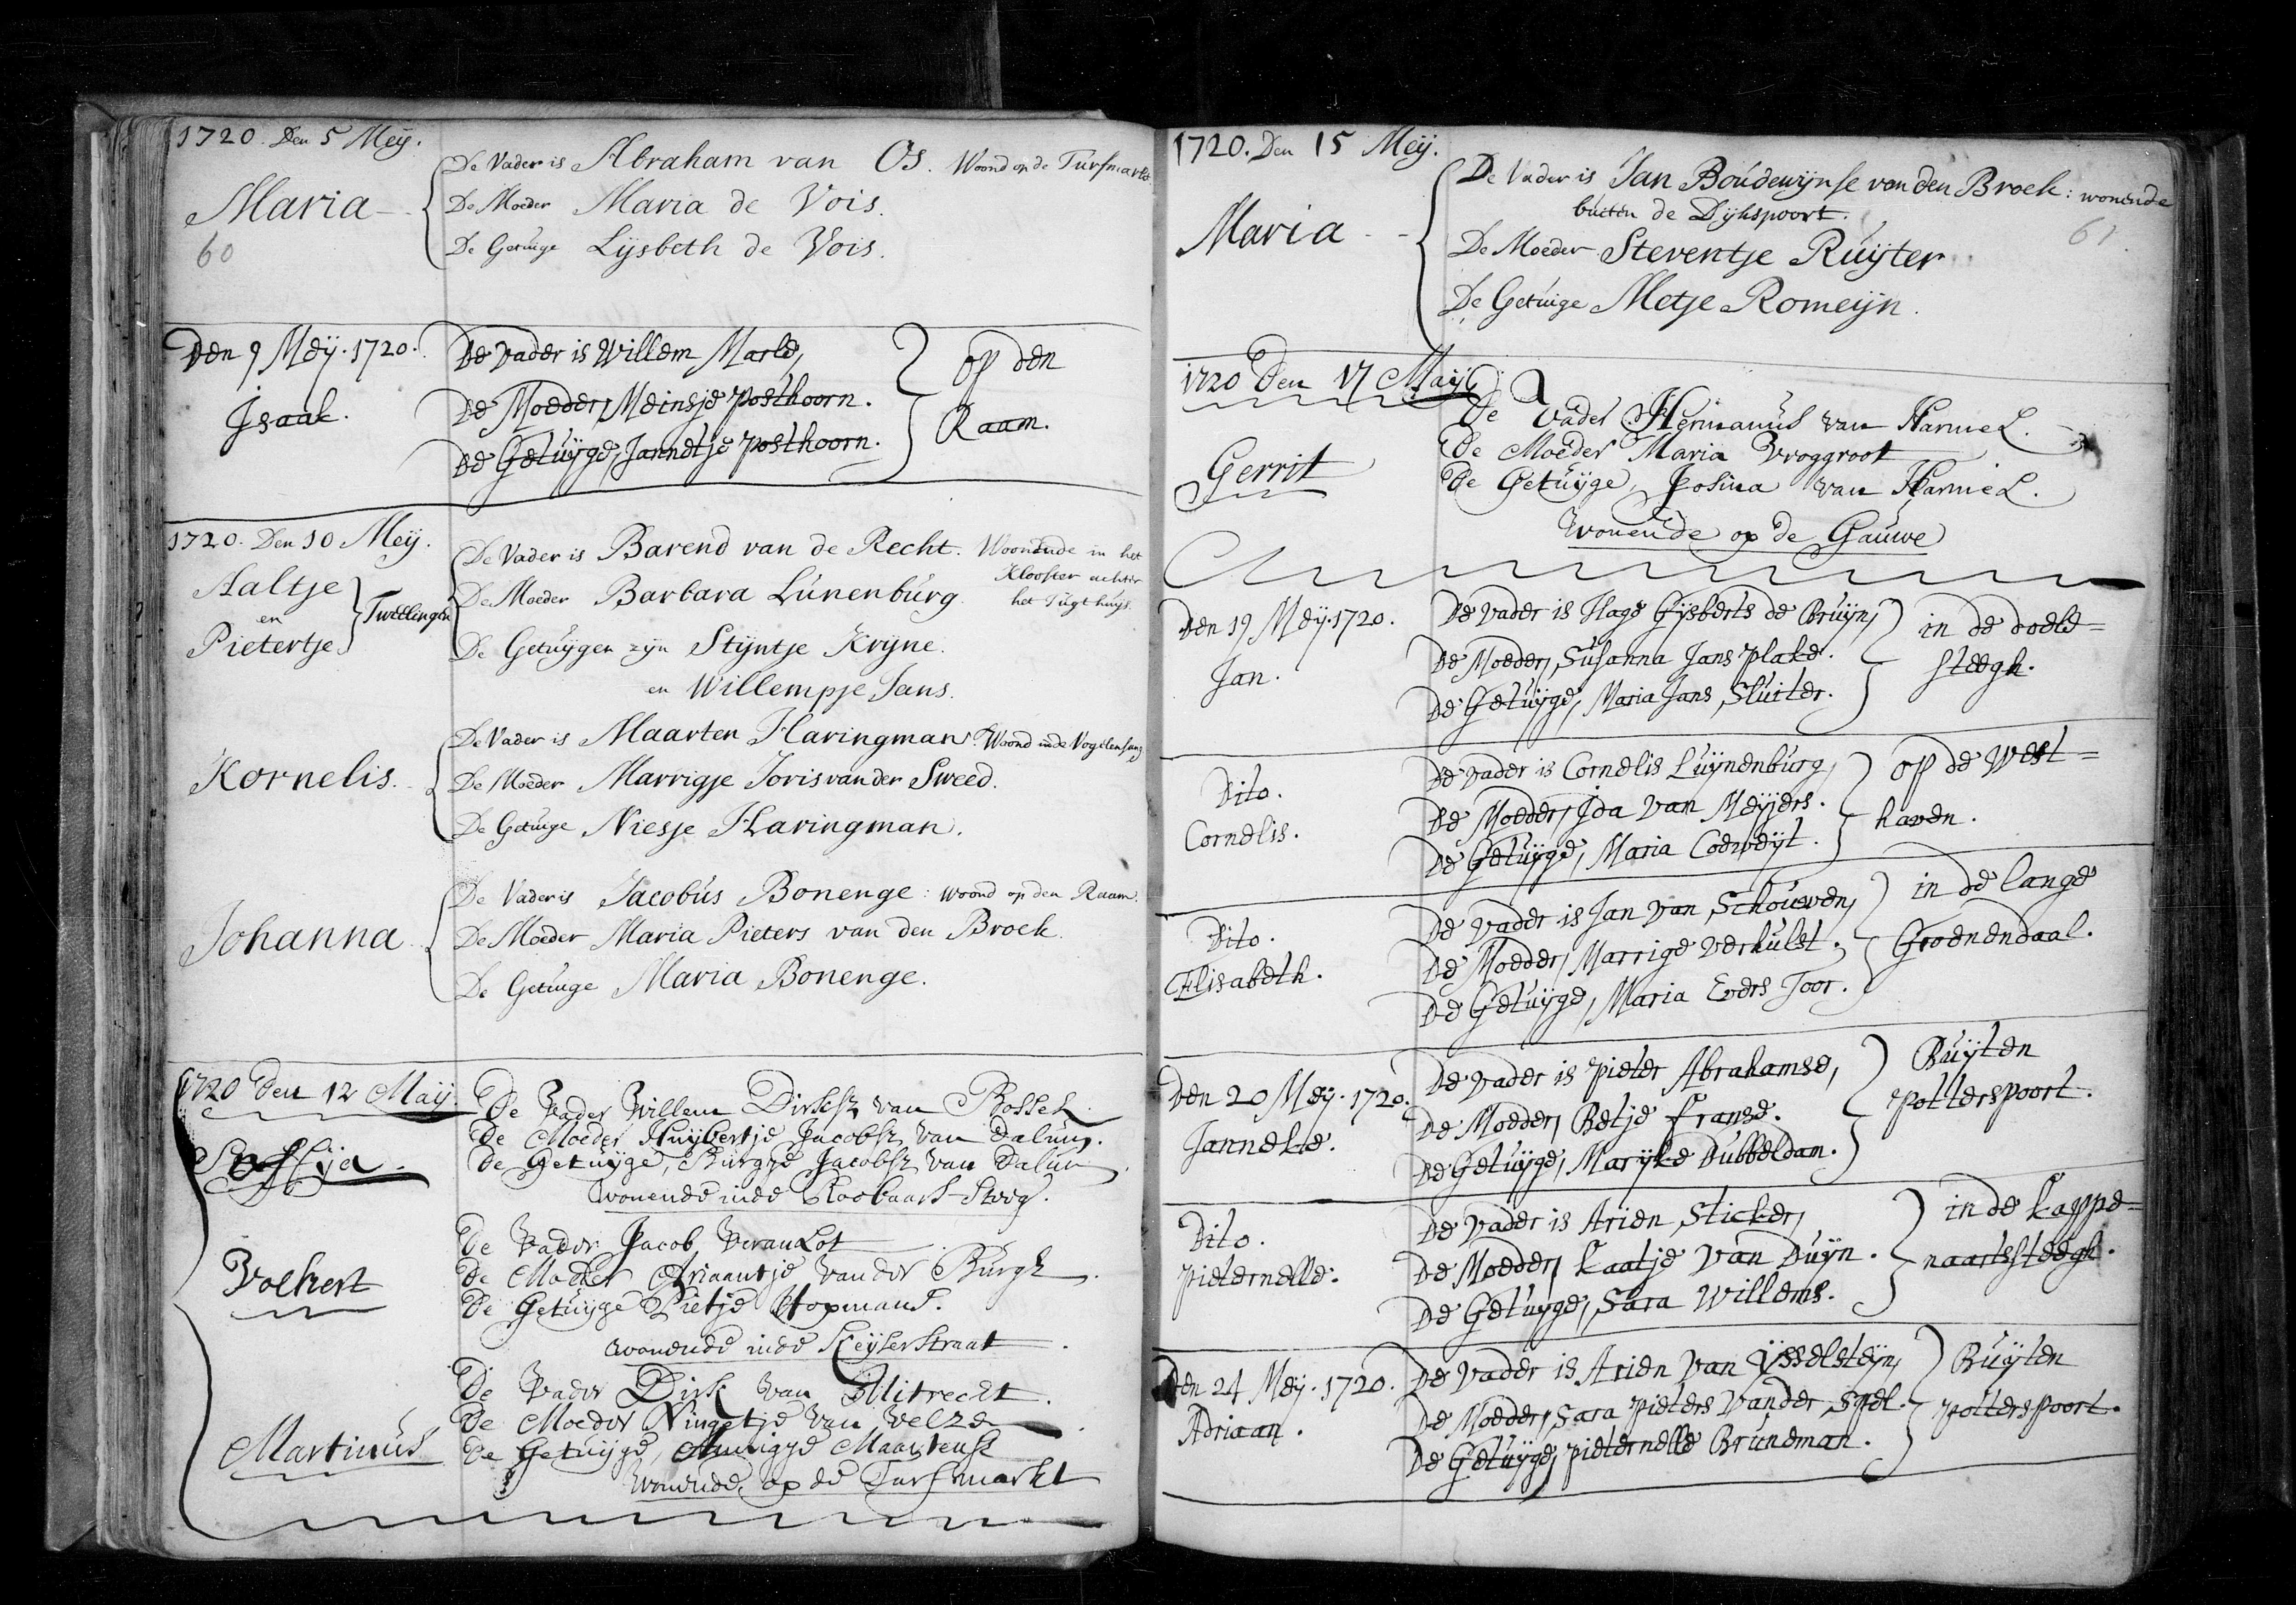 1720. Den 5 Meij.
Maria
60
De Vader is Abraham van Os. Woond op de Turfmarkt.
De Moeder Maria de Vois.
De Getuige Lijsbeth de Vois.
Den 9 Meij. 1720.
Isaak.
De Vader is Willem Marle,
De Moeder, Meinsje Posthoorn.
De Getuijge, Jannetje Posthoorn.
op den
Raam.
1720. Den 10 Meij.
Aaltje
en
Pietertje
Tweelingen
De Vader is Barend van de Recht. Woonende in het
Klooster achter
het Tugthuijs.
De Moeder Barbara Lúnenbúrg.
De Getuijgen zijn Stijntje Krijne.
en Willempje Jans.
Kornelis.
De Vader is Maarten Haringman. Woond in de Vogelensang
De Moeder Marrigje Joris van der Sweed.
De Getuige Niesje Haringman.
Johanna
De Vader is Jacobús Bonenge: woond op den Raam.
De Moeder Maria Pieters van den Broek.
De Getuige Maria Bonenge.
1720 Den 12 Maij
Soffija.
De Vader Willem Dirksz van Rossel
De Moeder Huijbertje Jacobsz van Dalum.
De Getuijge, Burgje Jacobsz van Dalum
wonende inde Steeg.
Volkert
De Vader Jacob
De Moeder Ariaantje vander Burgh
De Getuijge Pietje Hopmans.
wonende inde Keijserstraat
Martinus
De Vader Dirk van Uitrecht.
De Moeder Ningetje van Velze
De Getuijge, Maartensz
wonende op de Turfmarkt
1720. Den 15 Meij.
Maria
De Vader is Jan Boúdewijnse van den Broek: wonende
buiten de Dijkspoort.
61
De Moeder Steventje Rúijter
De Getuige Metje Romeijn.
1720 Den 17 Maij
Gerrit
De Vader Hermanus van Harmel.
De Moeder Maria Vroggroot
De Getuijge, Josina van Harmel.
wonende op de Gauwe
Den 19 Meij. 1720.
Jan.
De Vader is Hage Gijsberts de Bruijn,
De Moeder, Susanna Jans Plake.
De Getuijge, Maria Jans Sluiter.
in de doele=
steegh.
Dito.
Cornelis.
De Vader is Cornelis Luijnenburg,
De Moeder, Ida van Meijjers.
De Getuijge, Maria Coeweijt.
op de West=
haven.
Dito.
Elisabeth.
De Vader is Jan van Schouwen,
De Moeder, Marrige Verhulst.
De Getuijge, Maria Evers Joor.
in de lange
Groenendaal.
Den 20 Meij. 1720.
Janneke.
De Vader is Pieter Abrahamse,
De Moeder, Betje Franse.
De Getuijge, Marijke Dubbeldam.
Buijten
Potterspoort.
Dito.
Pieternelle.
De Vader is Arien Sticker,
De Moeder, Kaatje van Duijn.
De Getuijge, Sara Willems.
in de Kappe=
naartssteegh.
Den 24 Meij. 1720.
Adriaan.
De Vader is Arien van Ysselsteijn,
De Moeder, Sara Pieters vander Spel.
De Getuijge, Pieternelle Bruneman.
Buijten
Potterspoort.